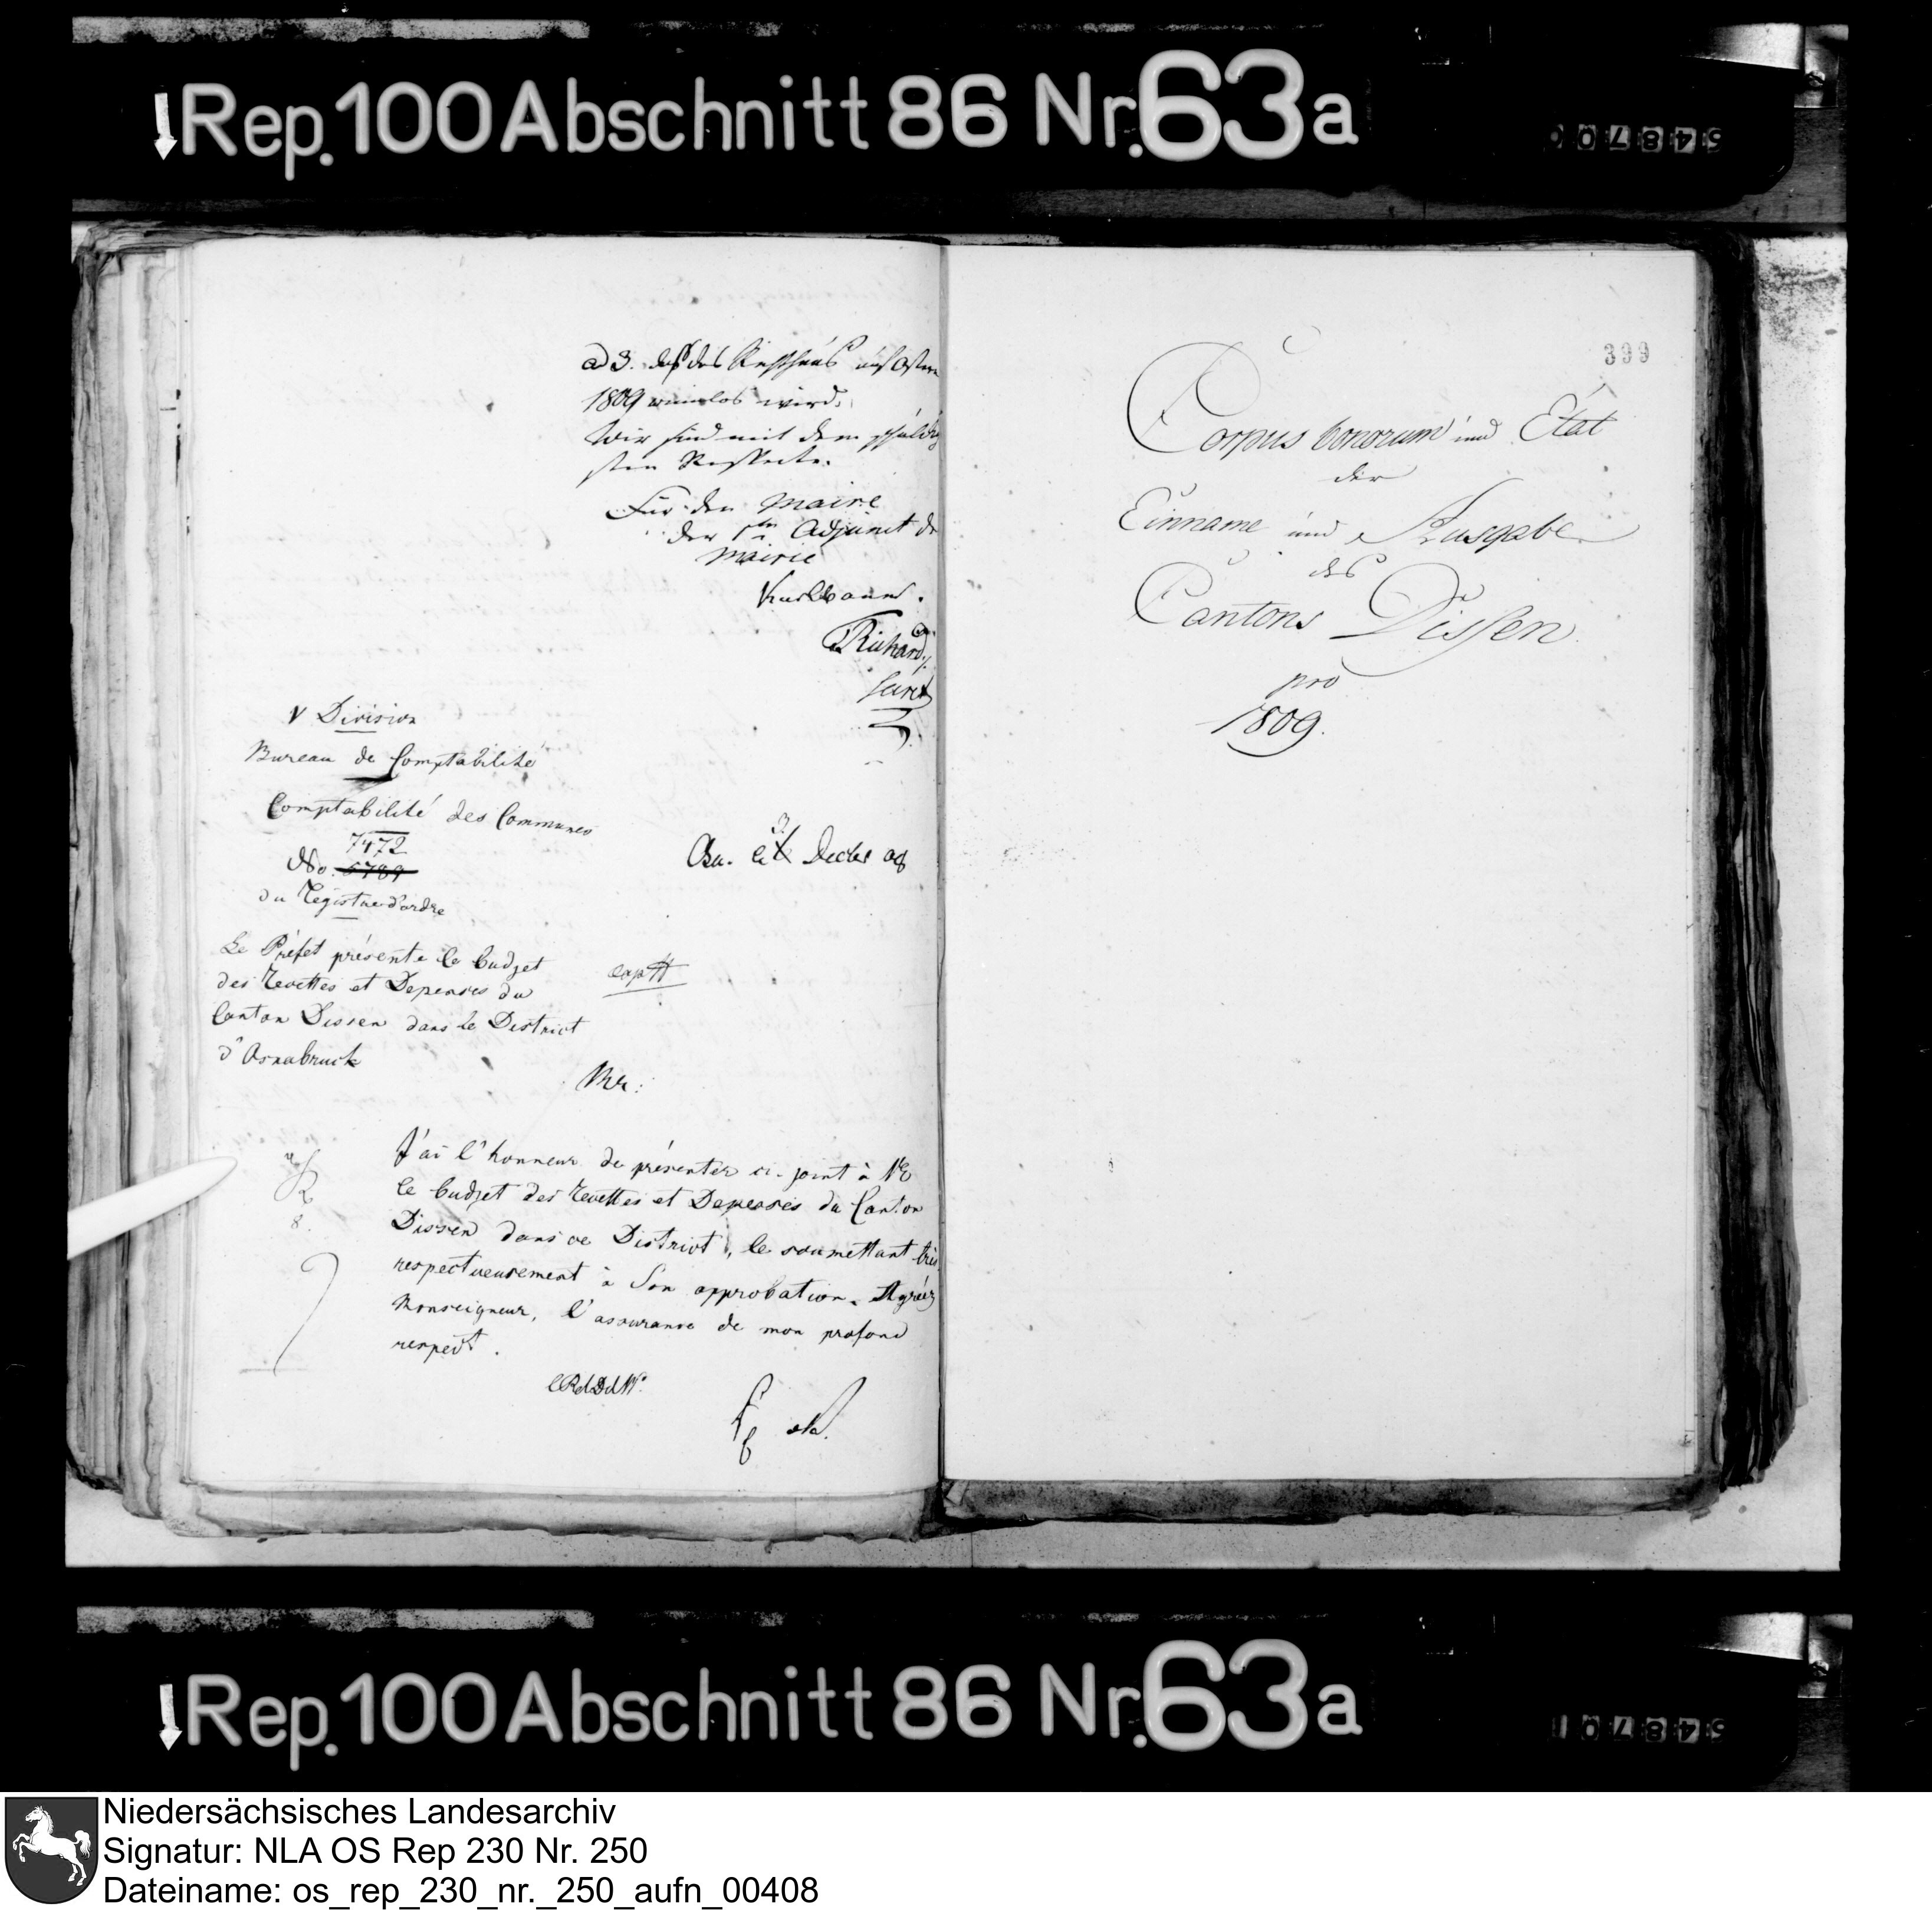 Rep. 100 Abschnitt 86 Nr. 63a
ad 3. daß das
1809 wird.
Wir sind mit dem schuldig
sten Respecte.
Für den Maire
der Adjunct de
Mairie
Richard
V Division
Bureau de Comptabilité
Comptabilité des Communes
7472
No.
du Registre d'ordre
Osn. le 3 Decbr 08
Le Préfet présente le budget
des recettes et Depenses du
Canton Dissen dans le District
d'Osnabruck
Mr:
J'ai l'honneur de présenter ci-joint à VE
le budget des recettes et Depenses du Canton
Dissen dans ce District, le soumettant très
respectueusement à Son approbation. Agréez
Monseigneur, l'assurance de mon profond
respect.
399
Corpus bonorum und État
der
Einname und Ausgabe
des
Cantons Dissen
pro
1809.
Rep. 100 Abschnitt 86 Nr. 63a
Niedersächsisches Landesarchiv
Signatur: NLA OS Rep 230 Nr. 250
Dateiname: os_rep_230_nr._250_aufn_00408